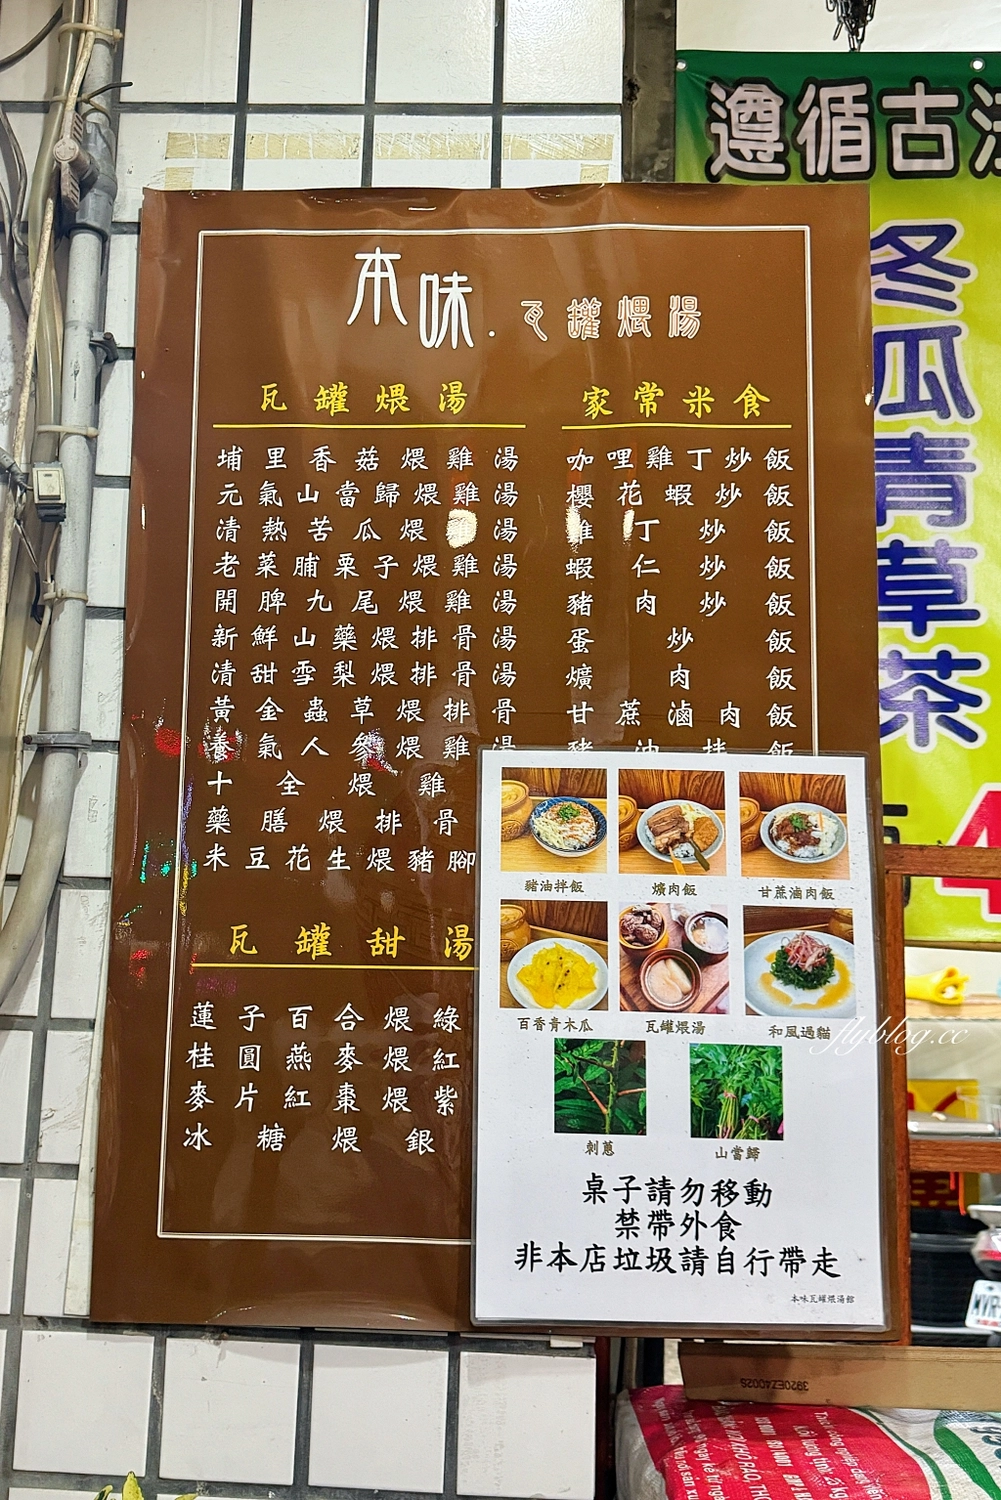 遵循古
冬瓜青草茶
本味．瓦罐煨湯
瓦罐煨湯
埔里香菇煨雞湯
元氣山當歸煨雞湯
清熱苦瓜煨 湯
老菜脯栗子煨雞湯
開脾九尾煨雞湯
新鮮山藥煨排骨湯
清甜雪梨煨排骨湯
黃金蟲草煨排骨
養氣人參煨雞湯
十全煨雞
藥膳煨排骨
米豆花生煨豬腳
瓦罐甜湯
蓮子百合煨綠
桂圓燕麥煨紅
麥片紅棗煨紫
冰糖煨銀
家常米食
咖哩雞丁炒飯
櫻花蝦炒飯
雞丁炒飯
蝦仁炒飯
豬肉炒飯
蛋炒飯
爌肉飯
甘蔗滷肉飯
豬油拌飯
豬油拌飯
爌肉飯
甘蔗滷肉飯
百香青木瓜
瓦罐煨湯
和風過貓
刺蔥
山當歸
桌子請勿移動
禁帶外食
非本店垃圾請自行帶走
本味瓦罐煨湯館
flyblog.cc
3920EZ4002S